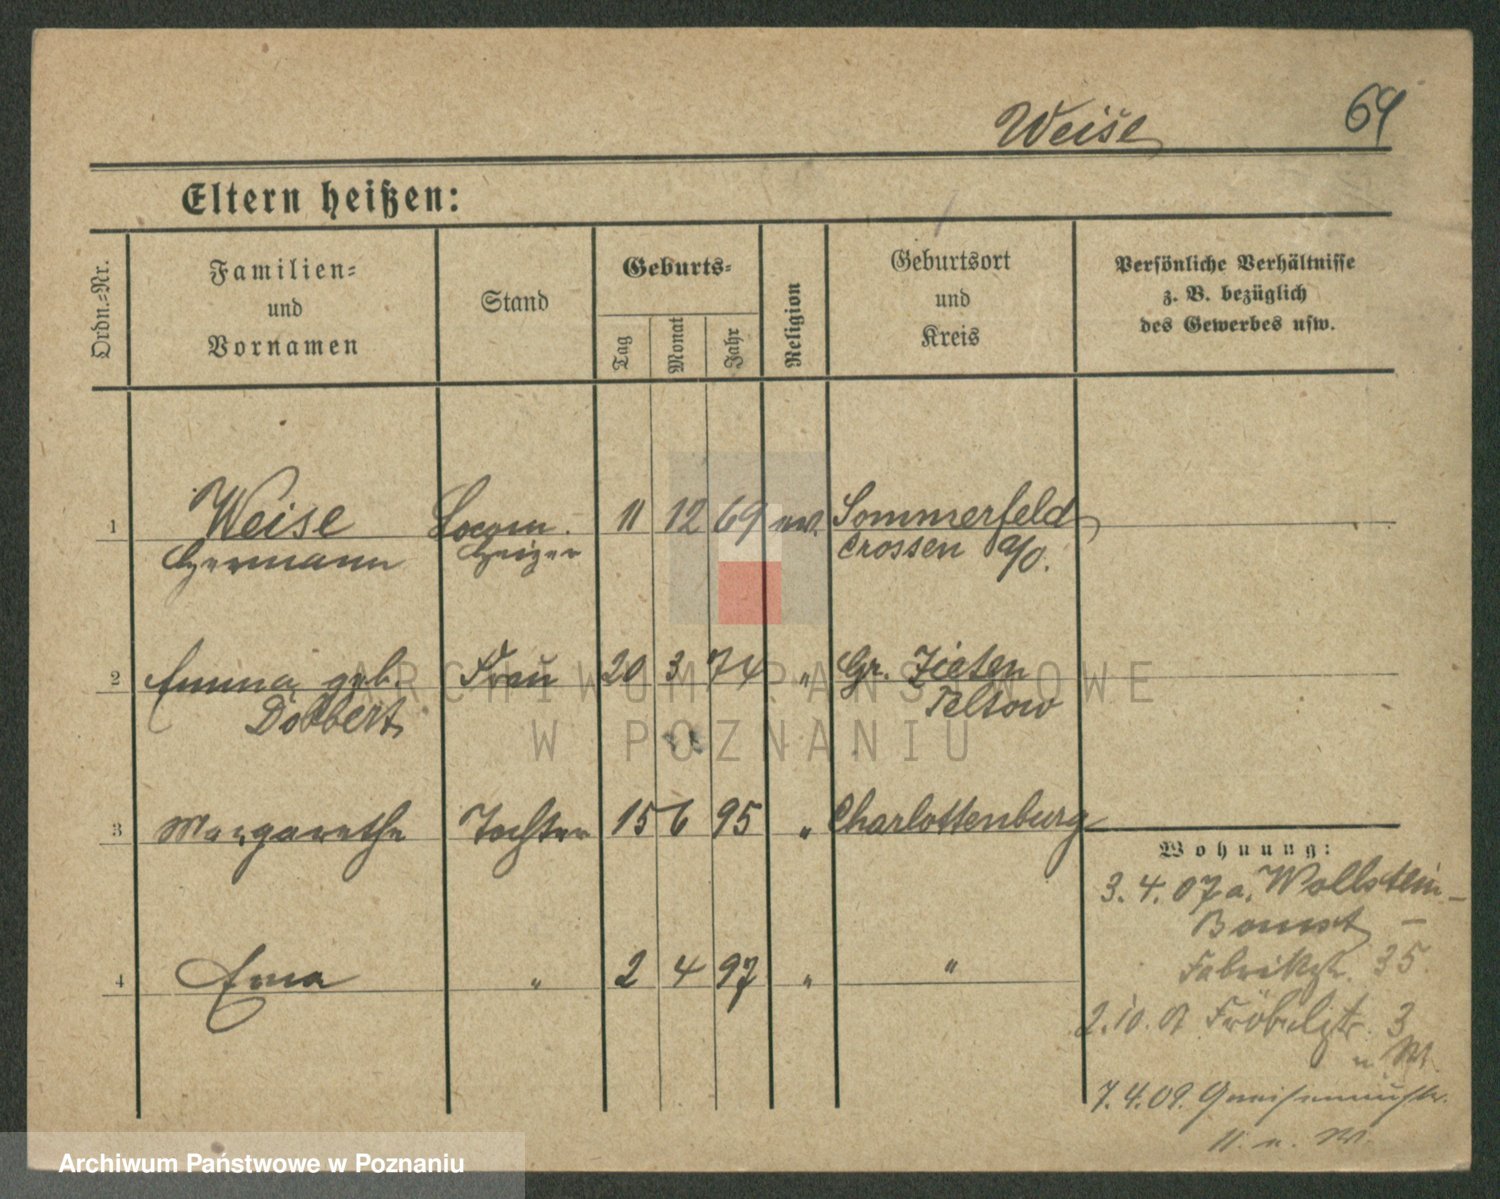 Weise 64
Eltern heißen:
Ordn.=Nr.
Familien=
und
Vornamen
Stand
Geburts=
Tag
Monat
Jahr
Religion
Geburtsort
und
Kreis
Persönliche Verhältnisse
z. B. bezüglich
des Gewerbes usw.
1 Weise Locom. 11 12 69 ev. Sommerfeld
Hermann Heizer Crossen a/O.
2 Emma geb. Frau 20 3 74 " Gr. Zieten
Dobbert Teltow
3 Margarethe Tochter 15 6 95 " Charlottenburg
Wohnung:
3. 4. 07 a. Wollstein-
Bomst -
Fabrikstr. 35.
4 Erna " 2 4 97 " "
2. 10. 07 Fröbelstr. 3
7. 4. 09. Gneisenaustr.
11.
ARCHIWUM PAŃSTWOWE
W POZNANIU
Archiwum Państwowe w Poznaniu